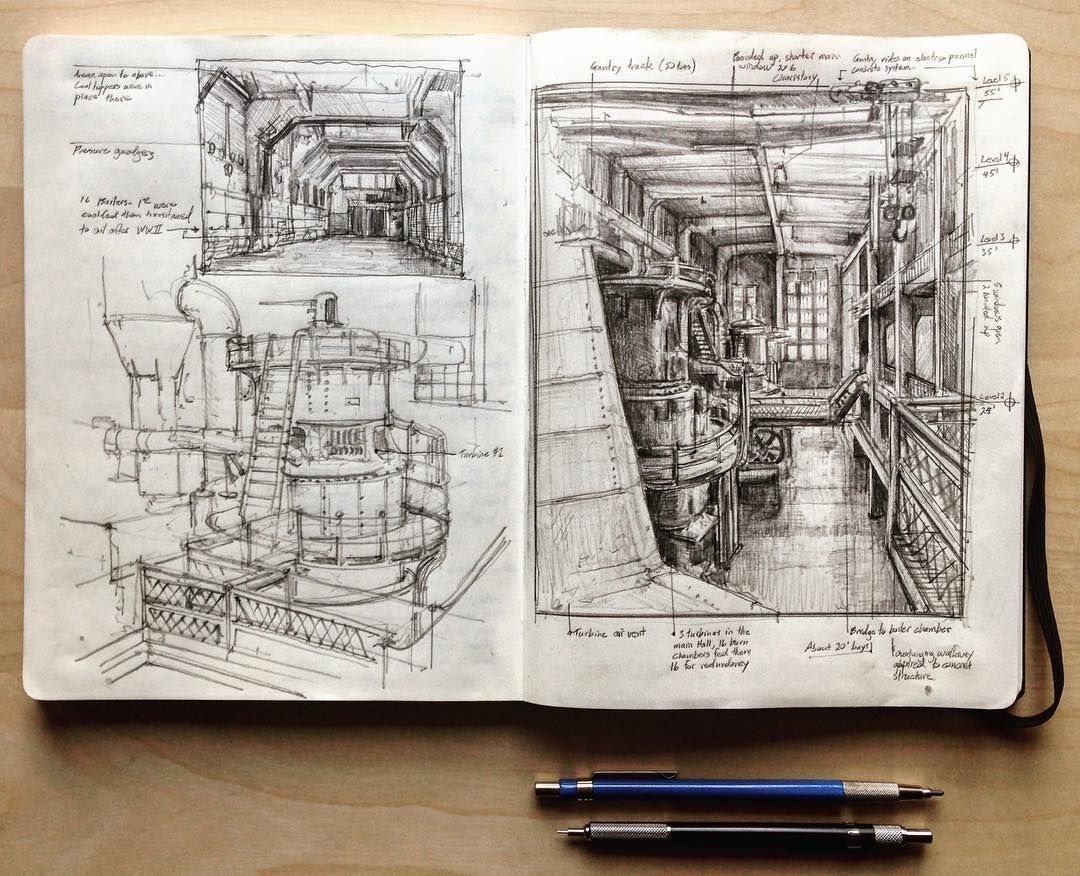 Areas open to above...
Coal hoppers were in
place there
Pressure guadges
16 Boilers - 1st were
coal fed then transitioned
to oil after WWII
Turbine #1
Gantry track (50 tons)
Boarded up, shorter main
window 2x6
Claristory
Gantry rides on electric pannel
concrete system.
Level 5
55'
Level 4
45'
Level 3
35'
5 windows open
2 boarded up
Level 2
25'
Turbine air vent
3 turbines in the
main Hall, 16 burn
chambers fed them
16 for redundancy
Bridge to boiler chamber
About 20' bay!
Overhanging walkway
applied to concret
structure.